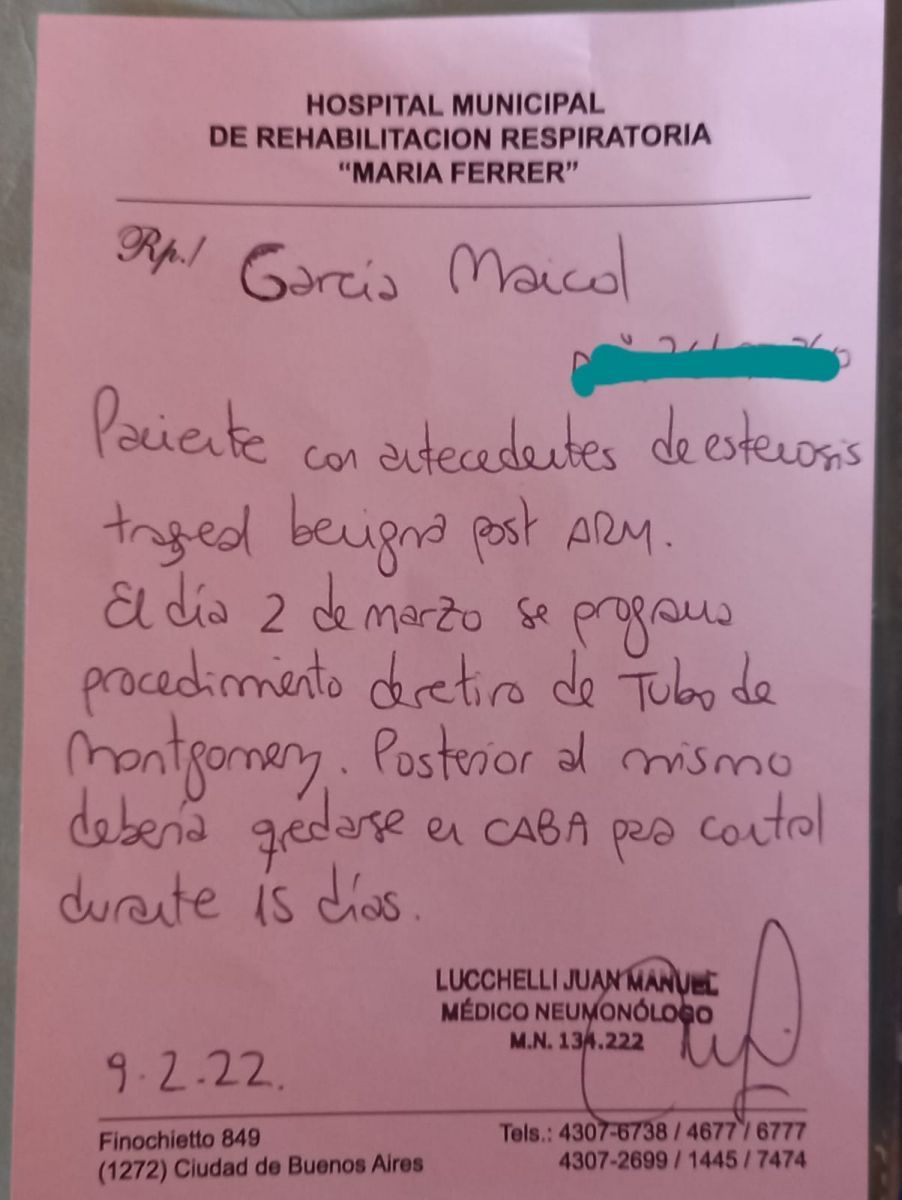 HOSPITAL MUNICIPAL
DE REHABILITACION RESPIRATORIA
“MARIA FERRER”
Rp./ García Maicol
Paciente con antecedentes de estenosis
traqeal benigna post ARM.
El día 2 de marzo se programa
procedimiento de retiro de Tubo de
Montgomery. Posterior al mismo
debería quedarse en CABA para control
durante 15 días.
LUCCHELLI JUAN MANUEL
MÉDICO NEUMONÓLOGO
M.N. 134.222
9.2.22.
Finochietto 849
(1272) Ciudad de Buenos Aires
Tels.: 4307-6738 / 4677 / 6777
4307-2699 / 1445 / 7474